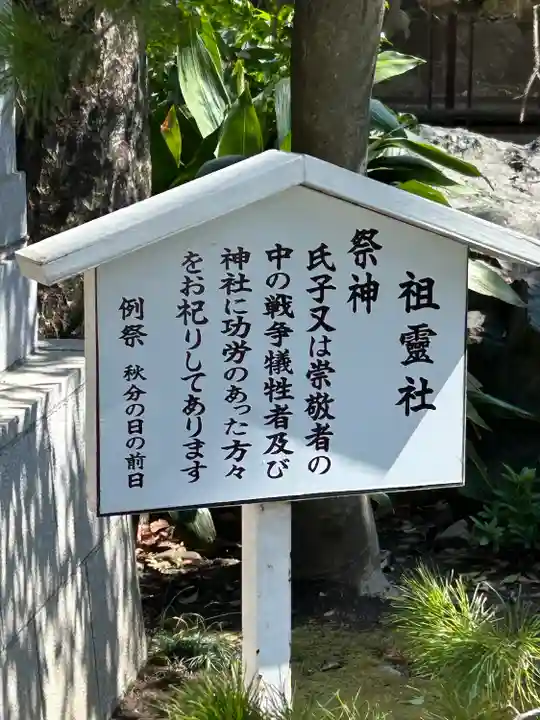 祖靈社
祭神
氏子又は崇敬者の
中の戦争犠牲者及び
神社に功労のあった方々
をお祀りしてあります
例祭 秋分の日の前日